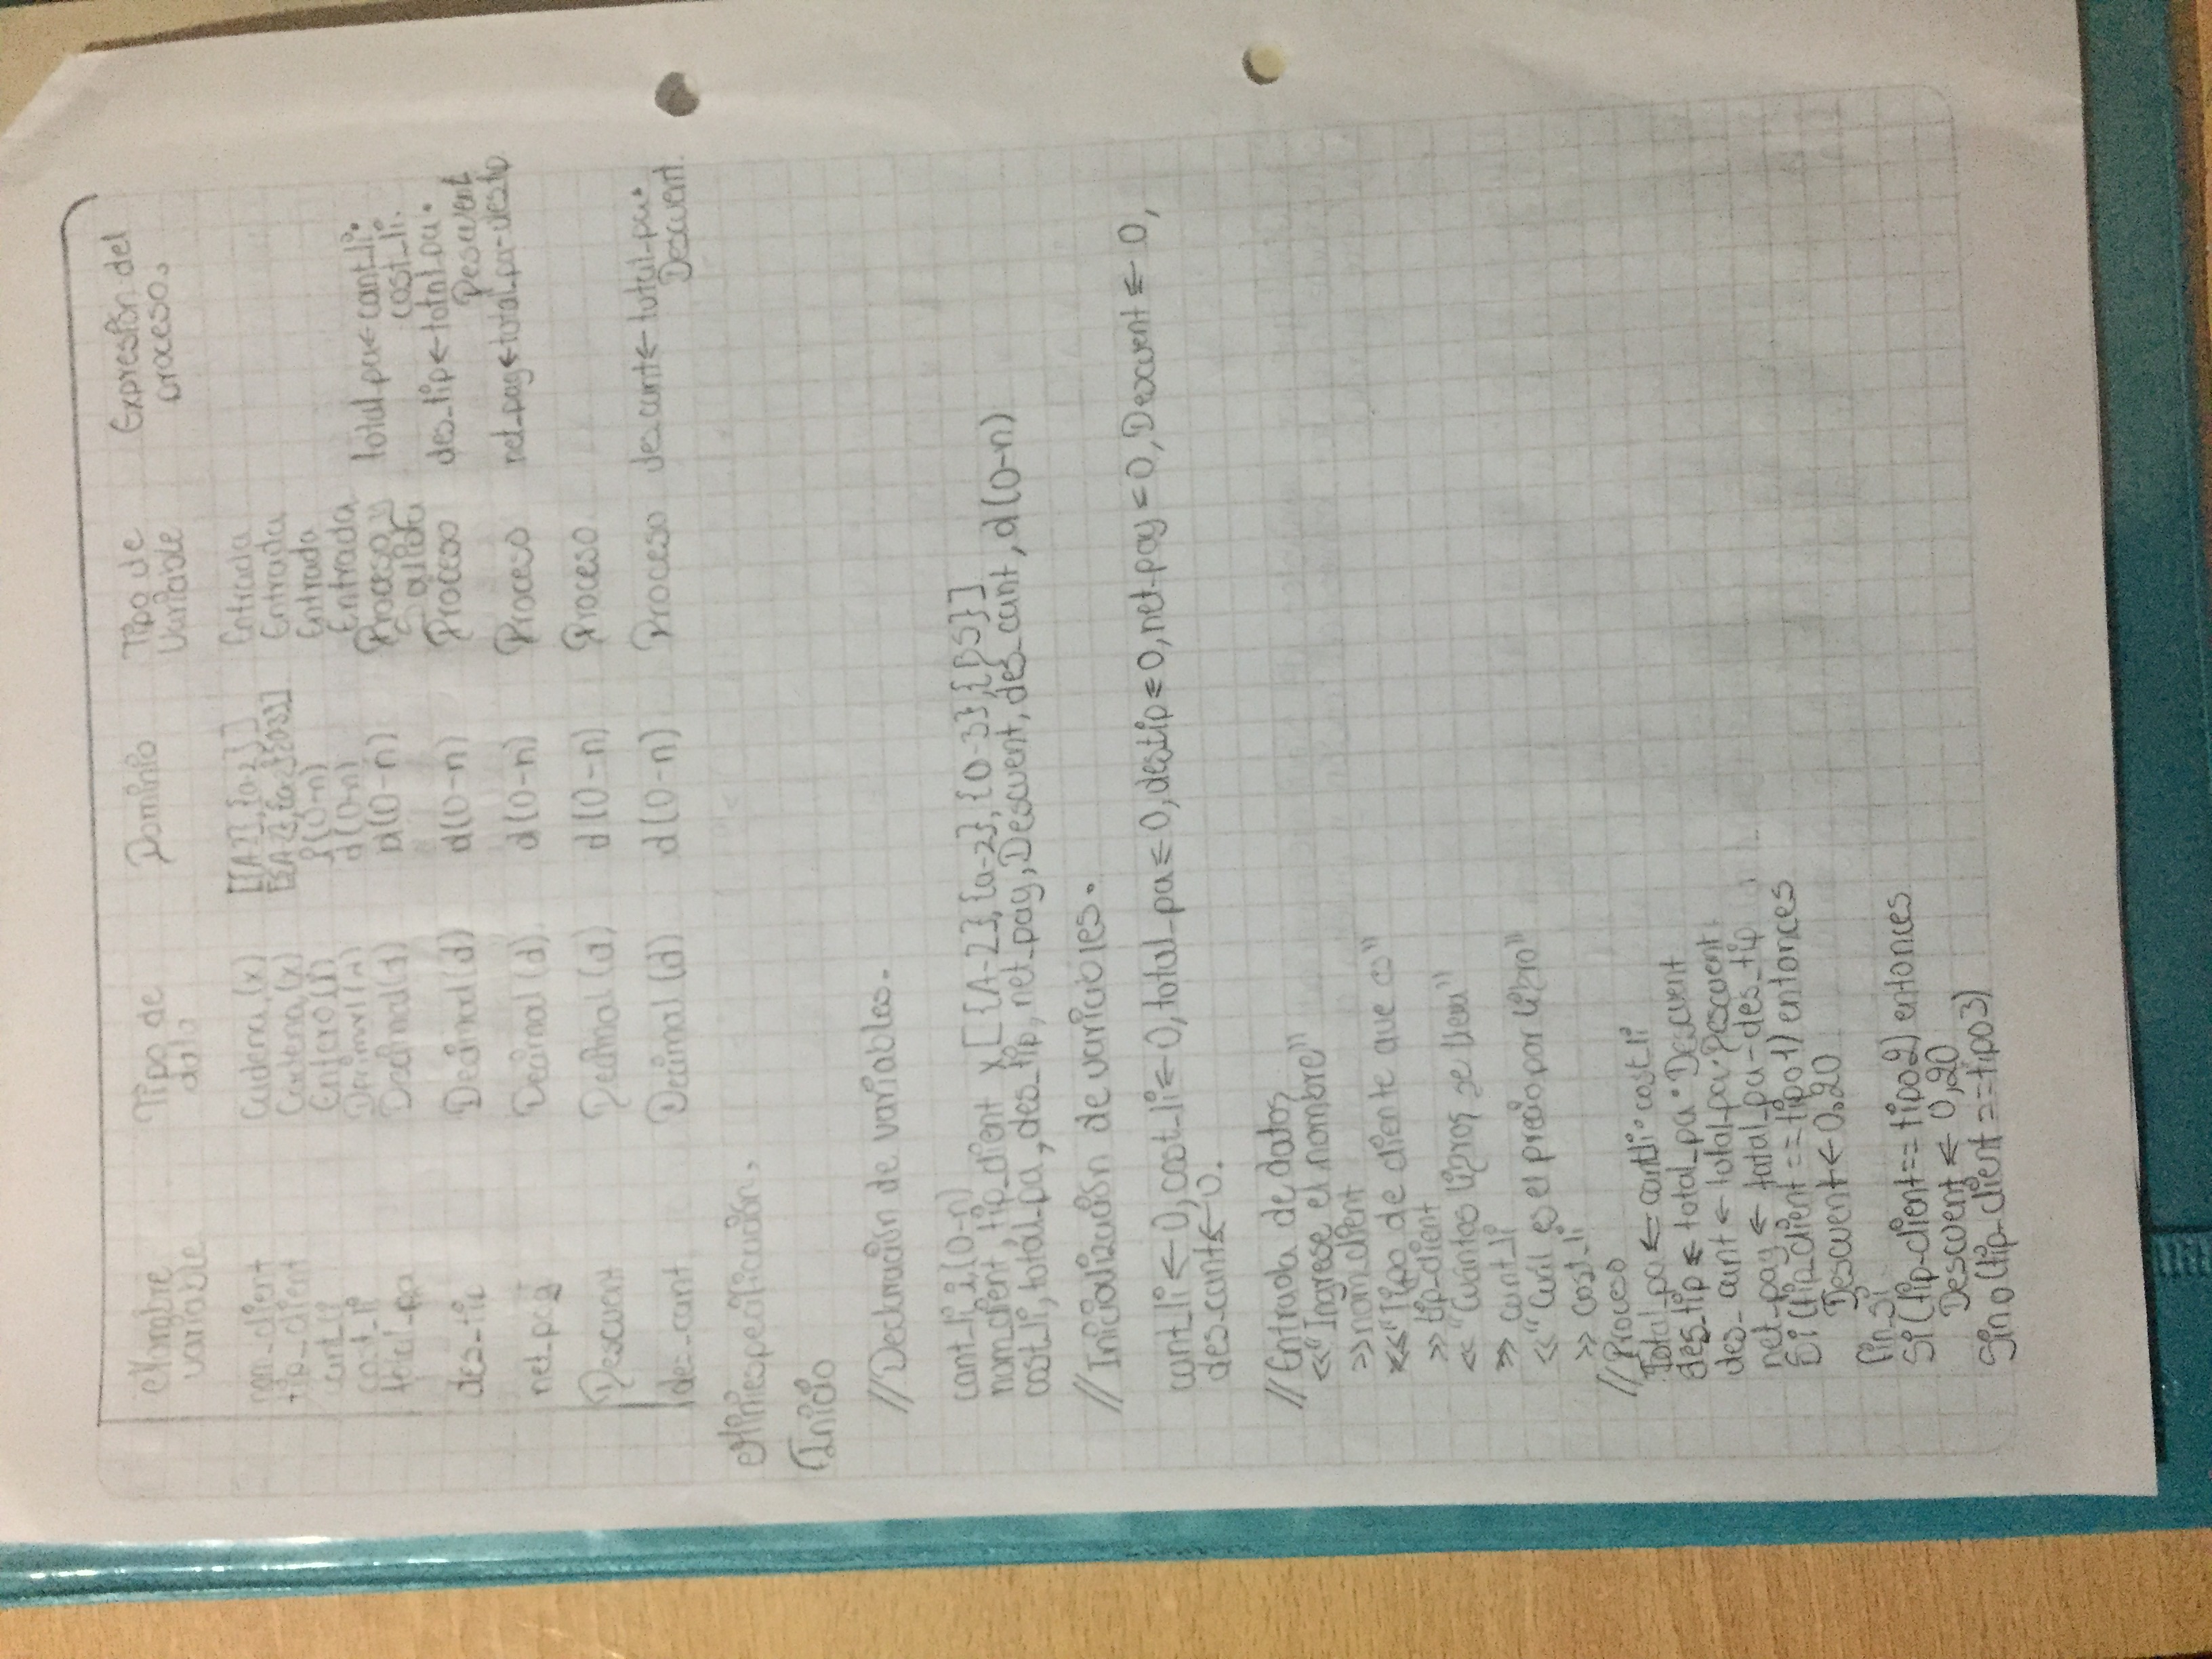 Nombre variable Tipo de dato Dominio Tipo de Variable Expresión del proceso.
nom_client Cadena (x) [{A-Z},{a-z}] Entrada
tip_client Cadena (x) [{A-Z},{a-z}{0-3}] Entrada
cant_li Entero (i) i(0-n) Entrada
cost_li Decimal (d) d(0-n) Entrada
total_pa Decimal (d) d(0-n) Proceso y Salida total_pa ← cant_li • cost_li.
des_tip Decimal (d) d(0-n) Proceso des_tip ← total_pa • Descuent
net_pag Decimal (d) d(0-n) Proceso net_pag ← total_pa - des_tip
Descuent Decimal (d) d(0-n) Proceso
des_cant Decimal (d) d(0-n) Proceso des_cant ← total_pa • Descuent.
Miniespecificación.
Inicio
//Declaración de variables.
cant_li i(0-n)
nom_client, tip_client x [{A-Z},{a-z},{0-3},{BS}]
cost_li, total_pa, des_tip, net_pag, Descuent, des_cant, d(0-n)
//Inicialización de variables.
cant_li ← 0, cost_li ← 0, total_pa ← 0, des_tip ← 0, net_pag ← 0, Descuent ← 0,
des_cant ← 0.
//Entrada de datos
<<"Ingrese el nombre"
>>nom_client
<<"Tipo de cliente que es"
>> tip_client
<< "Cuántos libros se lleva"
>> cant_li
<<"Cuál es el precio por libro"
>> cost_li
//Proceso
Total_pa ← cant_li • cost_li
des_tip ← total_pa • Descuent
des_cant ← total_pa • Descuent
net_pag ← total_pa - des_tip
Si (tip_client == tipo1) entonces
Descuent ← 0.20
fin_si
Si (tip_client == tipo2) entonces
Descuent ← 0,20
Sino (tip_client == tipo3)